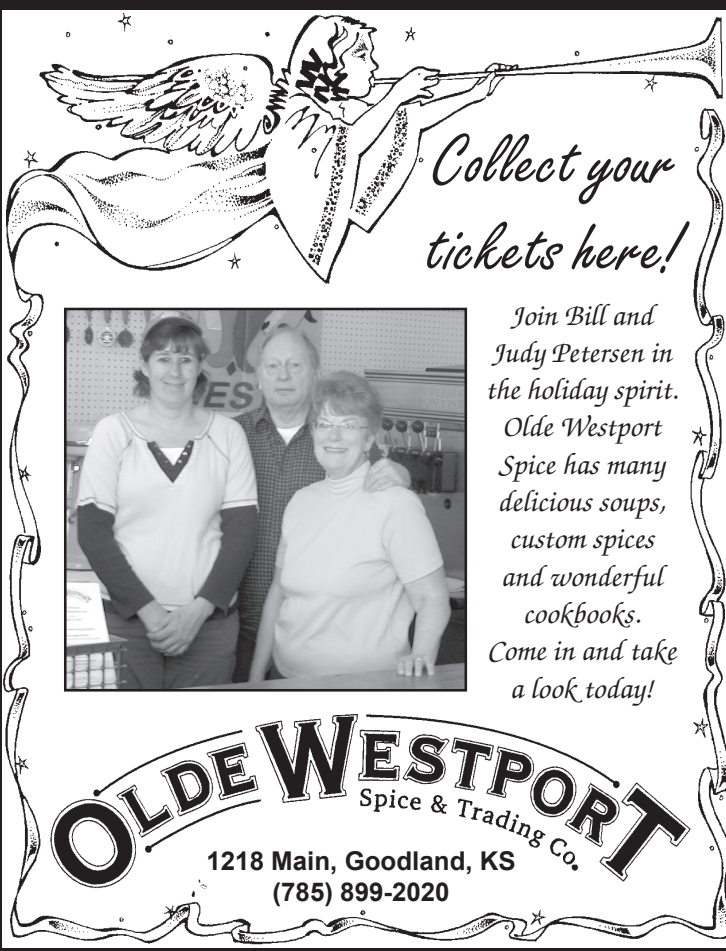 Collect your
tickets here!
Join Bill and
Judy Petersen in
the holiday spirit.
Olde Westport
Spice has many
delicious soups,
custom spices
and wonderful
cookbooks.
Come in and take
a look today!
ES
OLDE WESTPORT
Spice & Trading Co.
1218 Main, Goodland, KS
(785) 899-2020